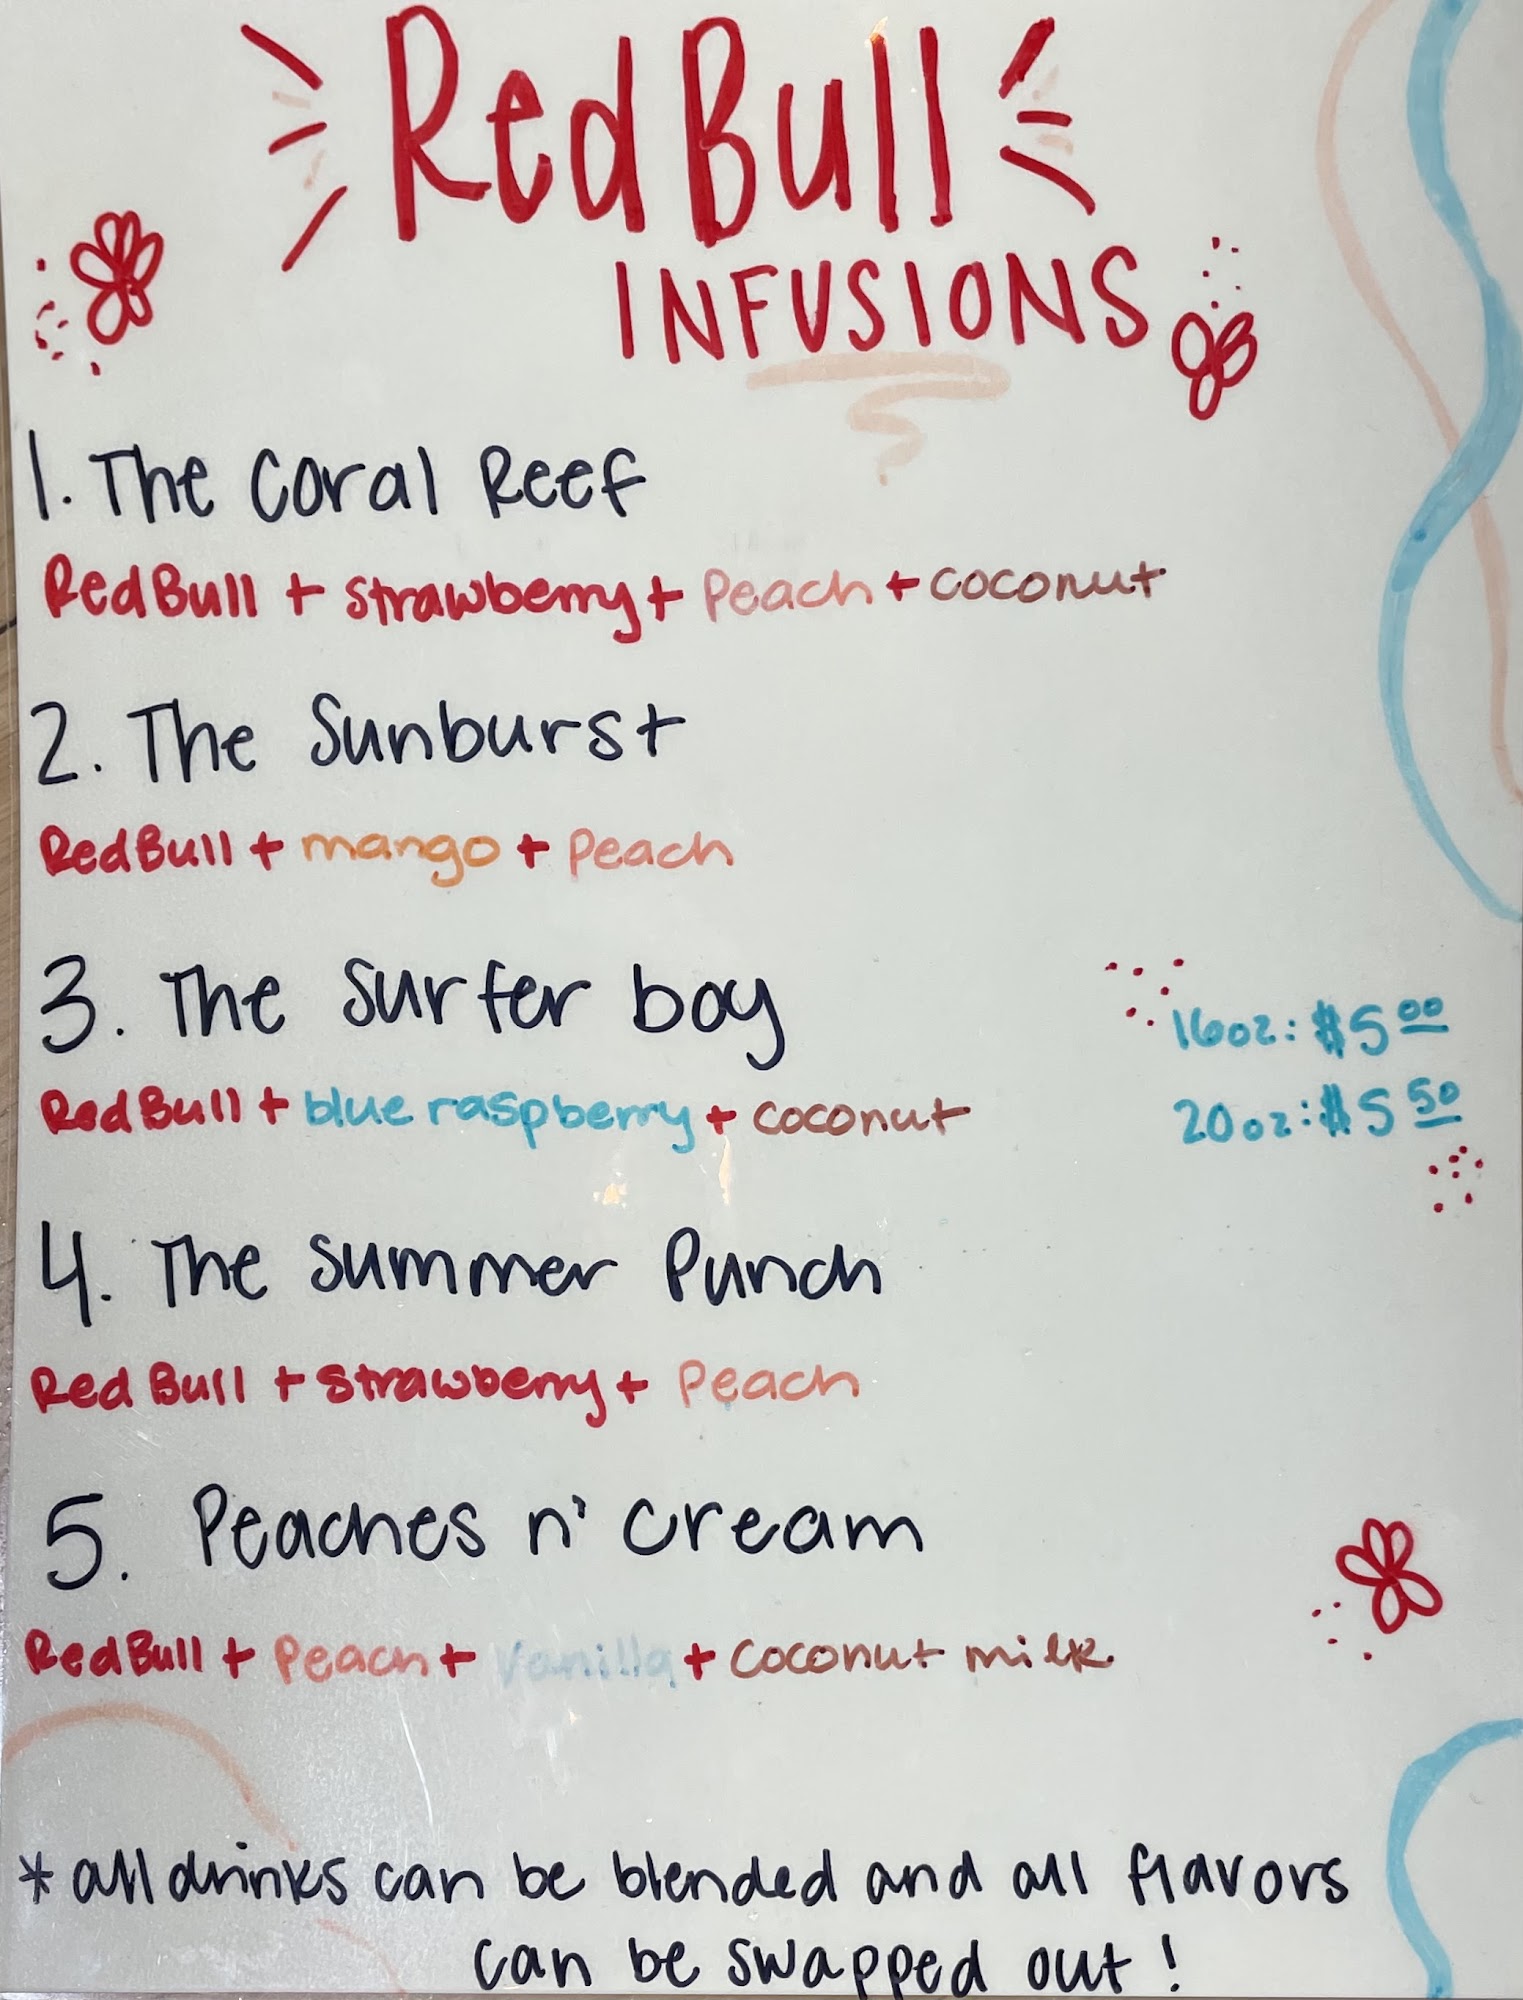 Red Bull
INFUSIONS
1. The Coral Reef
Red Bull + strawberry + Peach + coconut
2. The Sunburst
Red Bull + mango + Peach
3. The Surfer boy
16oz: $5.00
Red Bull + blue raspberry + coconut
20oz: $5.50
4. The Summer Punch
Red Bull + strawberry + Peach
5. Peaches n' cream
Red Bull + Peach + Vanilla + coconut milk
* all drinks can be blended and all flavors
can be swapped out!